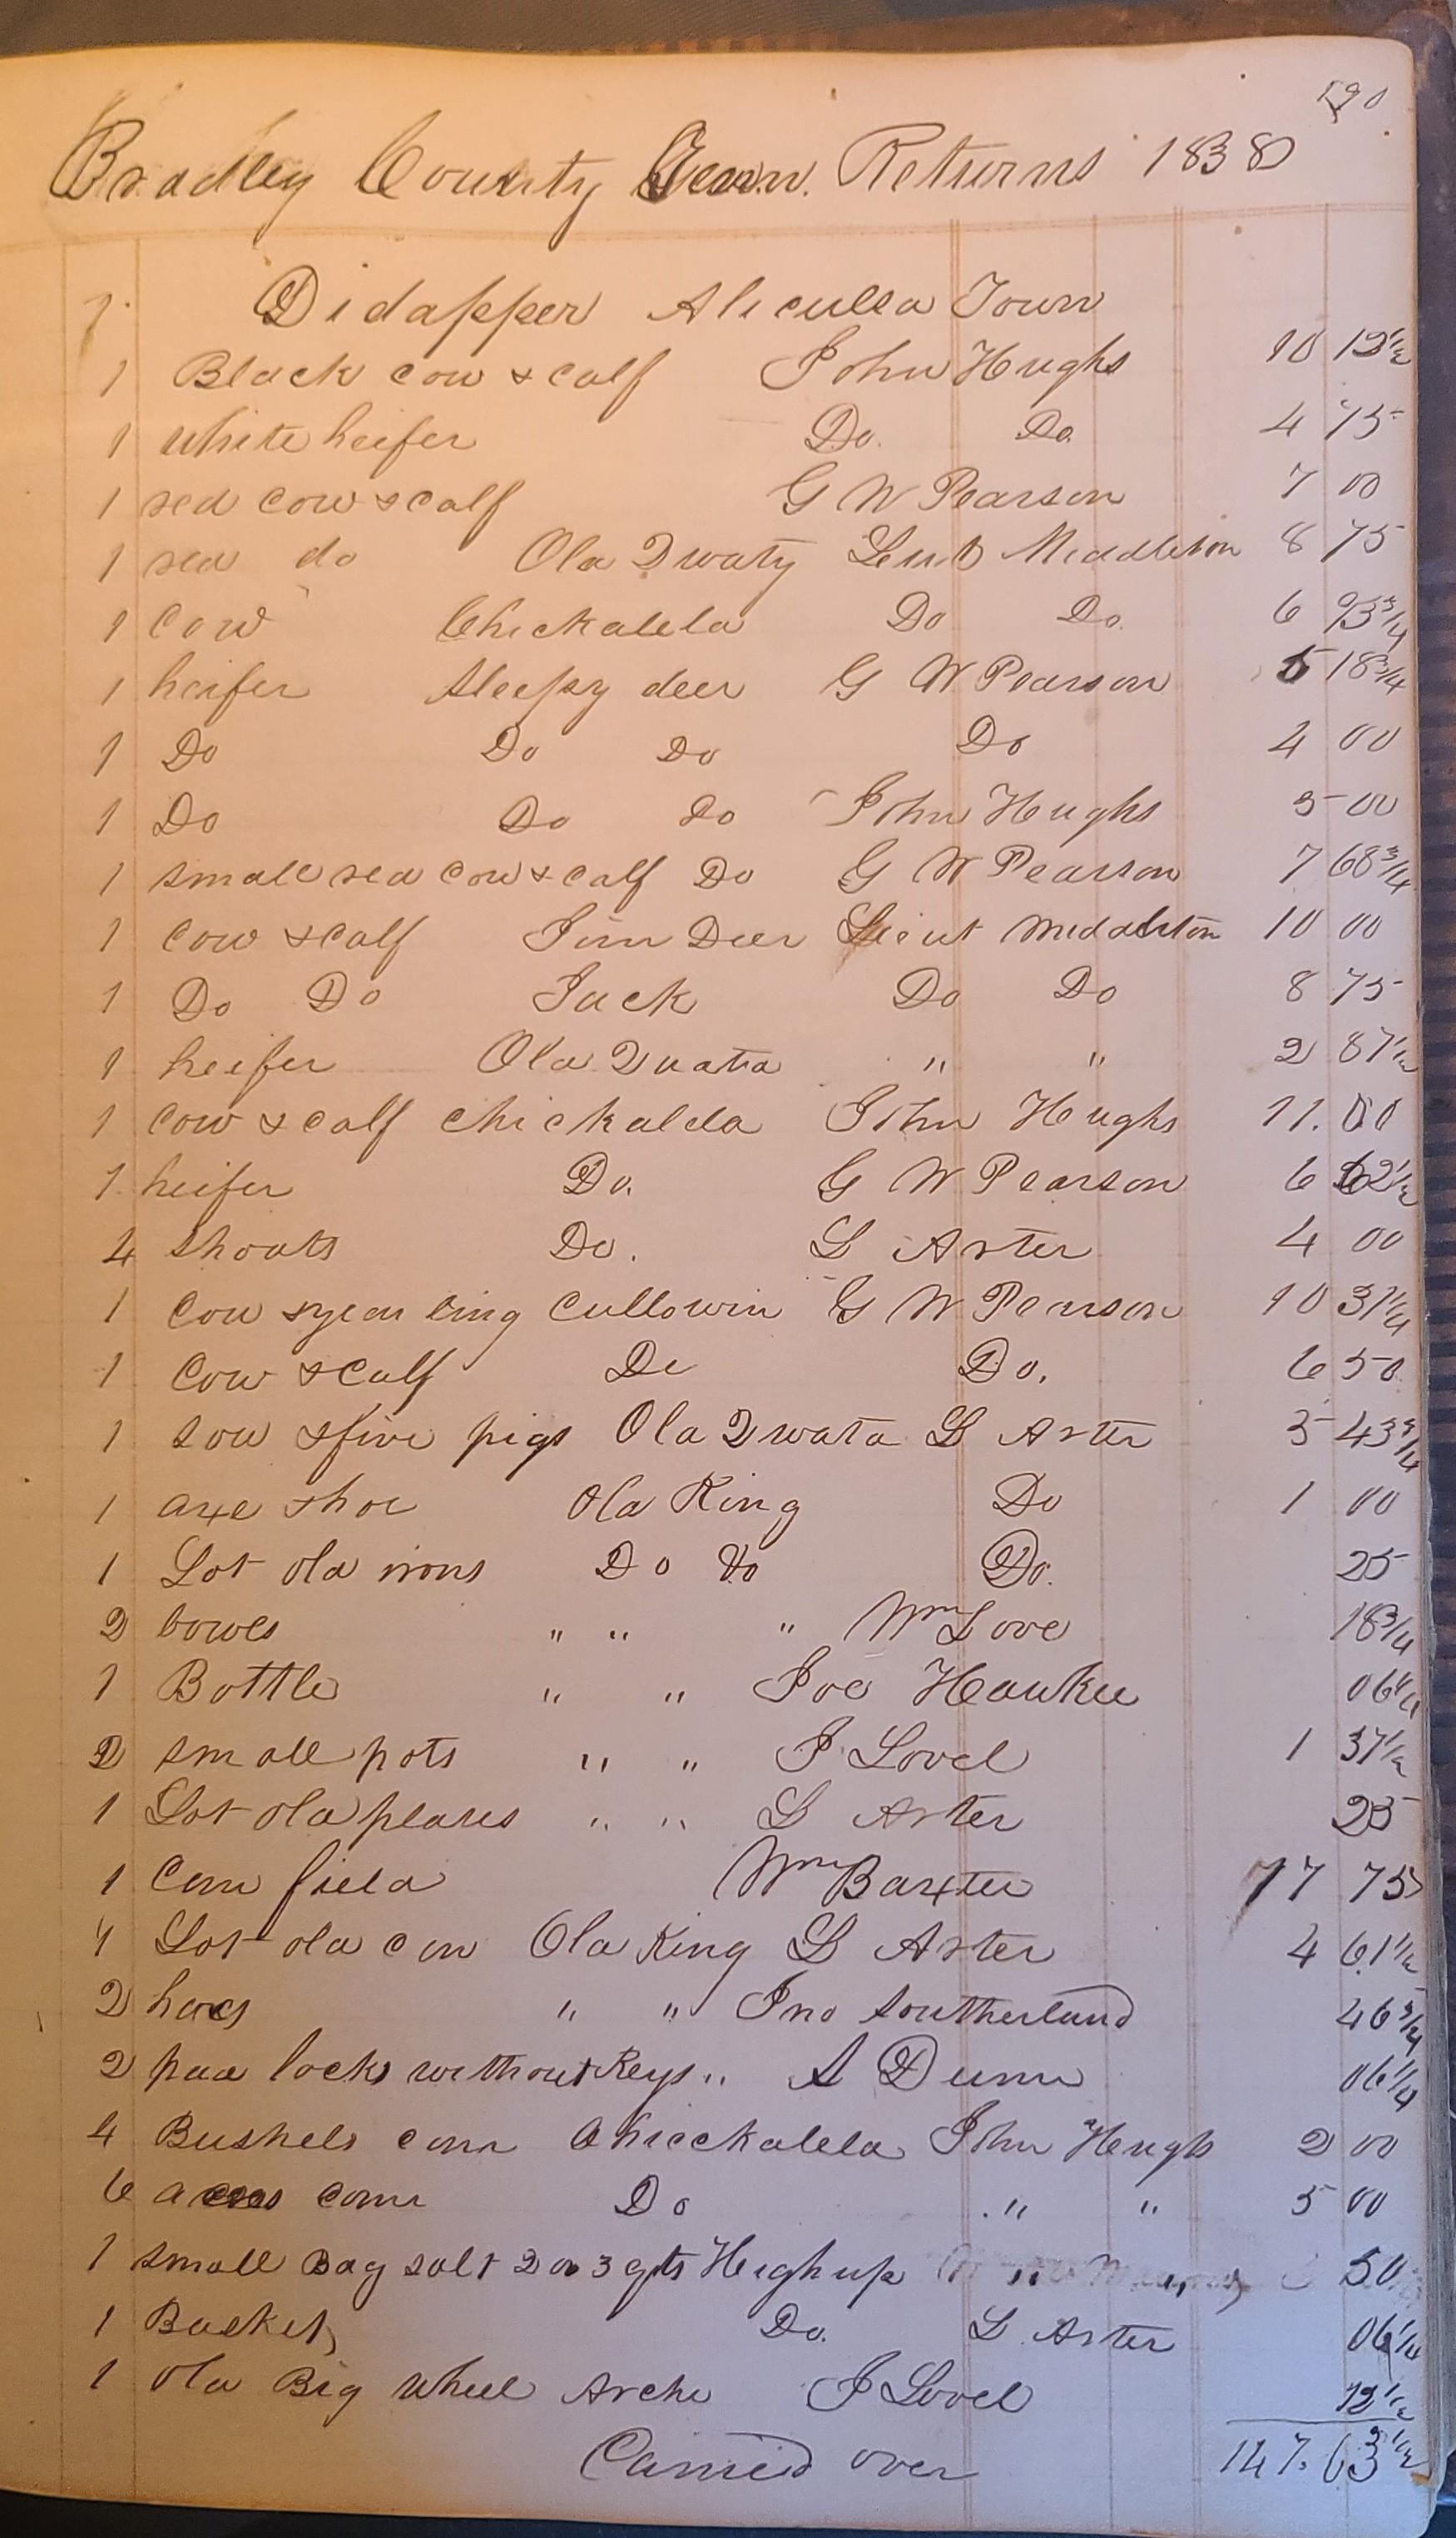 190
Bradley County Tenn. Returns 1838
1. Didapper Aliculla Town
1 Black cow & calf John Hughs 10 12 1/2
1 white heifer Do. Do. 4 75
1 red cow & calf G W Pearson 7 00
1 red do Old Qwaty Leut Middleton 8 75
1 Cow Chickalela Do Do. 6 93 3/4
1 heifer Sleepy deer G W Pearson 5 18 3/4
1 Do Do Do Do 4 00
1 Do Do do John Hughs 5 00
1 small red cow & calf Do G W Pearson 7 68 3/4
1 cow & calf Jim Deer Lieut Middleton 10 00
1 Do Do Jack Do Do 8 75
1 heifer Old Quata " " 2 87 1/2
1 cow & calf Chickalela John Hughs 11.00
1 heifer Do. G W Pearson 6 62 1/2
4 shoats Do. L Arter 4 00
1 Cow & yearling Cullowin G W Pearson 10 31 1/4
1 Cow & Calf Do Do. 6 50
1 sow & five pigs Old Qwata L Arter 5 43 3/4
1 axe & hoe Old King Do 1 00
1 Lot old irons Do Do Do. 25
2 bowls " " " Wm Love 18 3/4
1 Bottle " " Joe Hawkee 06 1/4
2 small pots " " J Lovel 1 37 1/2
1 Lot old plates " " L Arter 25
1 Corn field Wm Baxter 17 75
1 Lot old corn Old King L Arter 4 61 1/2
2 hoes " " Jno Southerland 46 3/4
2 pad locks without Keys " A Dunn 06 1/4
4 Bushels corn Chicckalela John Hughs 2 00
6 acres corn Do " " 5 00
1 small Bag salt 2 or 3 qts High up 50
1 Basket Do. L Arter 06 1/4
1 Old Big wheel Arche J Lovel 12 1/2
Carried over 147.63 1/2